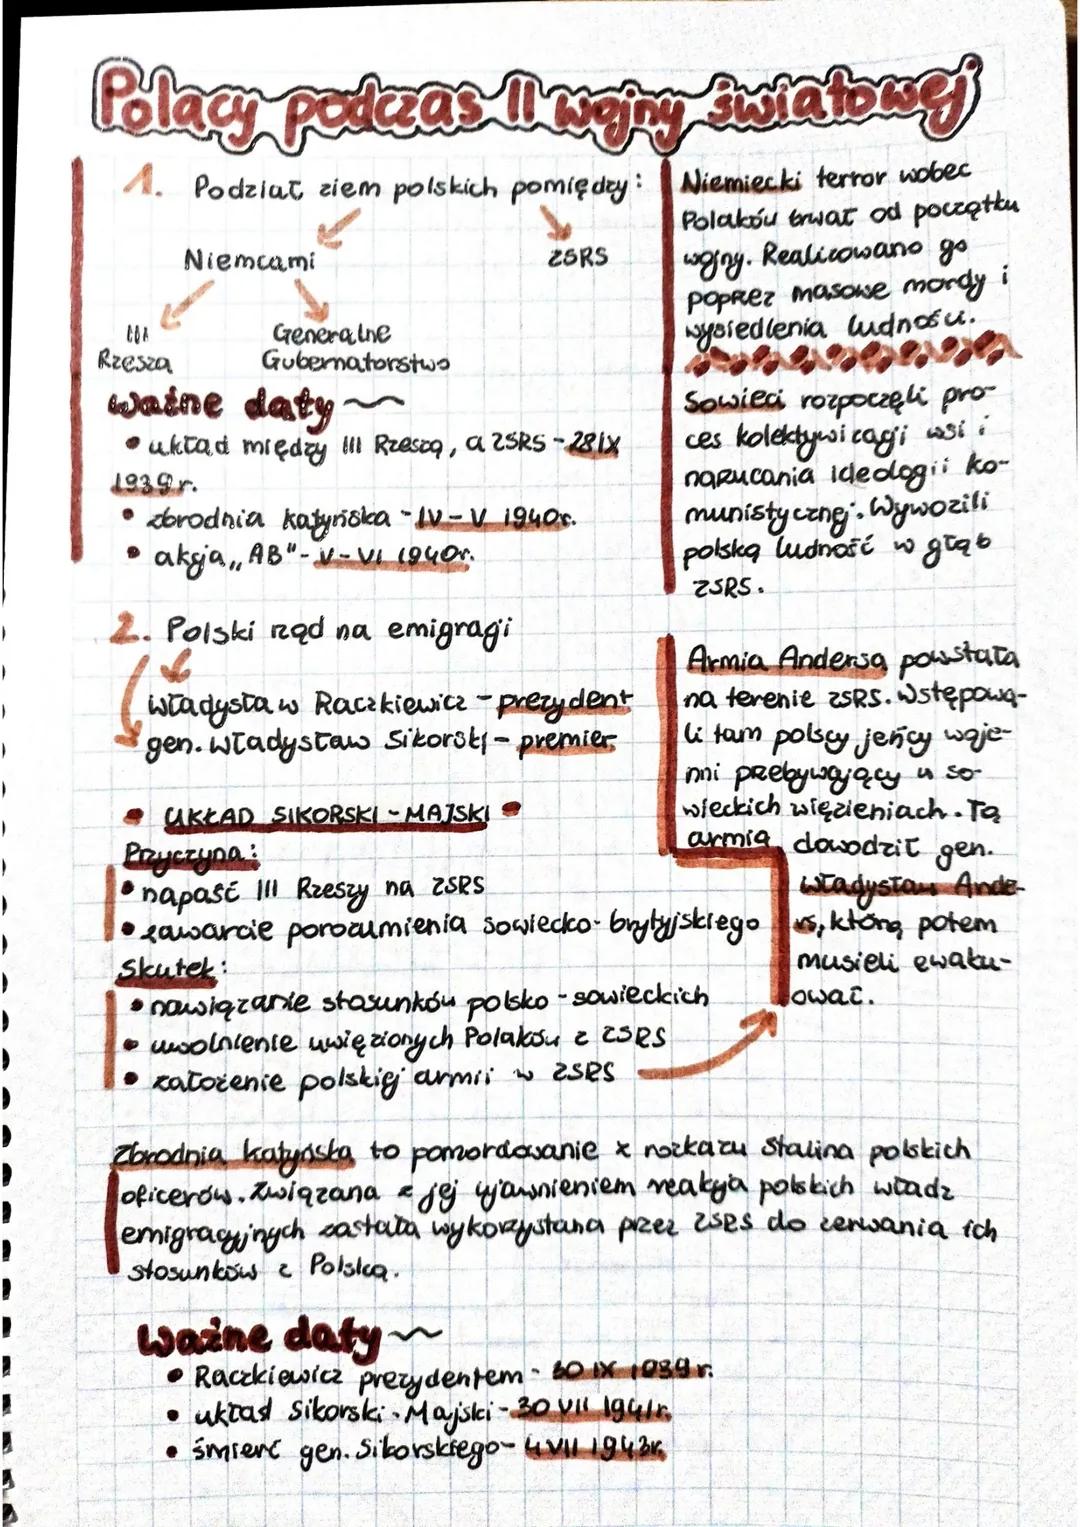 Polacy podczas II wojny światowej
1. Podział ziem polskich pomiędzy:
Niemcami
ZSRS
III
Rzesza
Generalne
Gubernatorstwo
ważne daty
• układ między III Rzeszą, a ZSRS - 28 IX
1939 r.
• zbrodnia katyńska - IV - V 1940r.
• akcja „AB" - V - VI 1940r.
Niemiecki terror wobec
Polaków trwał od początku
wojny. Realizowano go
poprzez masowe mordy i
wysiedlenia ludności.
Sowieci rozpoczęli pro-
ces kolektywizacji wsi i
narzucania ideologii ko-
munistycznej. Wywozili
polską ludność w głąb
ZSRS.
2. Polski rząd na emigracji
Władysław Raczkiewicz - prezydent
gen. Władysław Sikorski - premier
• UKŁAD SIKORSKI - MAJSKI •
Przyczyna:
• napaść III Rzeszy na ZSRS
• zawarcie porozumienia sowiecko-brytyjskiego
Skutek:
• nawiązanie stosunków polsko-sowieckich
• uwolnienie uwięzionych Polaków z ZSRS
• założenie polskiej armii w ZSRS
Armia Andersa powstała
na terenie ZSRS. Wstępowa-
li tam polscy jeńcy woje-
nni przebywający w so-
wieckich więzieniach. Tą
armią dowodził gen.
Władysław Ande-
rs, którą potem
musieli ewaku-
ować.
Zbrodnia katyńska to pomordowanie z rozkazu Stalina polskich
oficerów. Związana z jej ujawnieniem reakcja polskich władz
emigracyjnych została wykorzystana przez ZSRS do zerwania ich
stosunków z Polską.
ważne daty
• Raczkiewicz prezydentem - 30 IX 1939 r.
• układ Sikorski - Majski - 30 VII 1941r.
• śmierć gen. Sikorskiego - 4 VII 1943r.